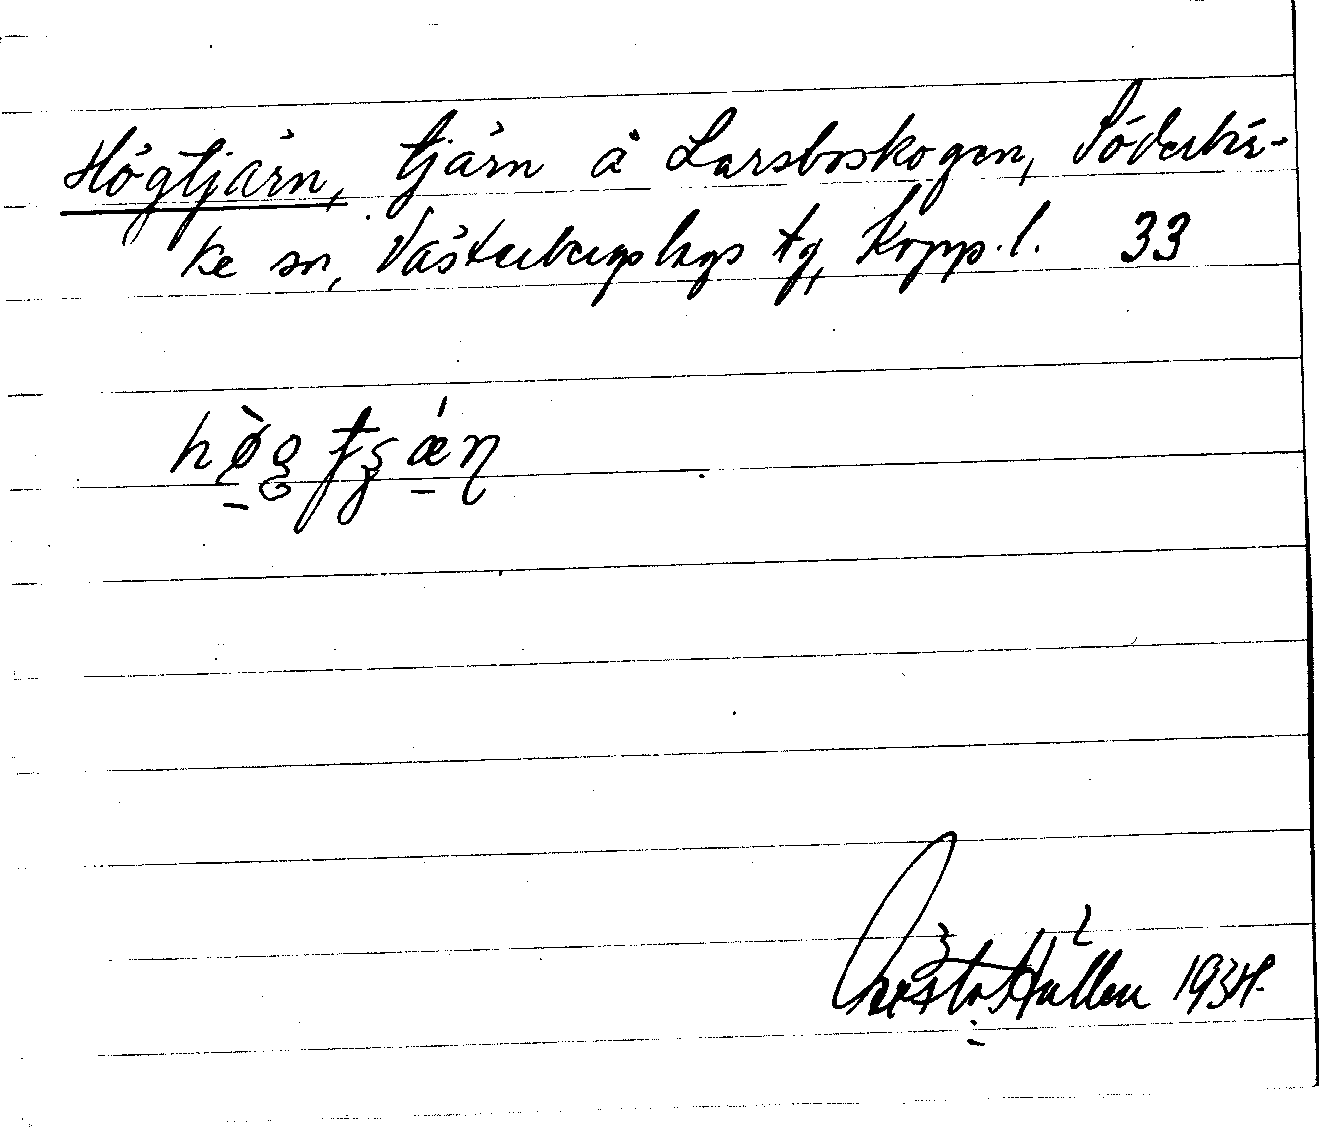 Högtjärn, tjärn å Larsboskogen, Söderbär-
ke sn, Västerbergslags tg, Kopp. l. 33
hø̀gtʂǽn
Hallen 1934.